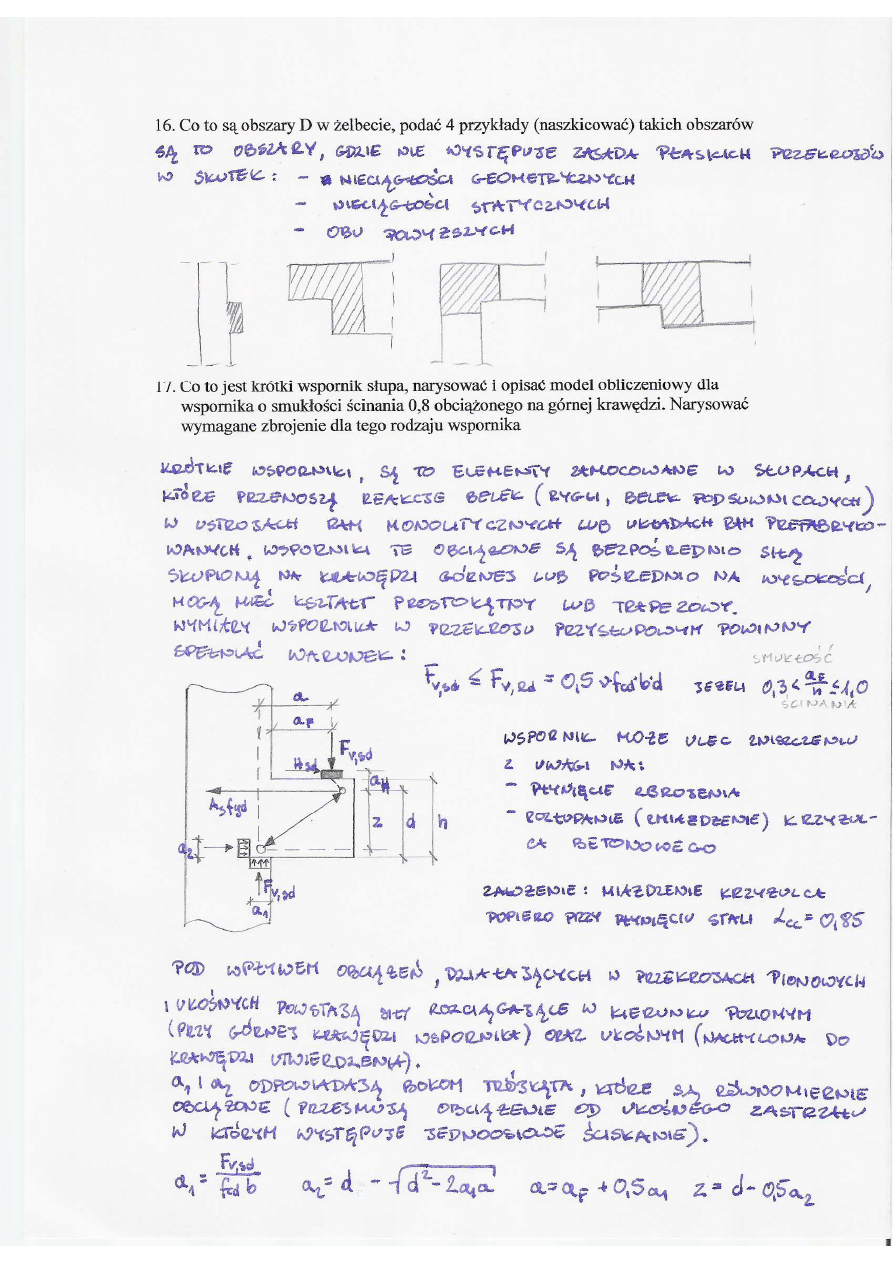 16. Co to są obszary D w żelbecie, podać 4 przykłady (naszkicować) takich obszarów
SĄ TO OBSZARY, GDZIE NIE WYSTĘPUJE ZASADA PŁASKICH PRZEKROJÓW
W SKUTEK : - NIECIĄGŁOŚCI GEOMETRYCZNYCH
- NIECIĄGŁOŚCI STATYCZNYCH
- OBU POWYŻSZYCH
17. Co to jest krótki wspornik słupa, narysować i opisać model obliczeniowy dla
wspornika o smukłości ścinania 0,8 obciążonego na górnej krawędzi. Narysować
wymagane zbrojenie dla tego rodzaju wspornika
KRÓTKIE WSPORNIKI, SĄ TO ELEMENTY ZAMOCOWANE W SŁUPACH,
KTÓRE PRZENOSZĄ REAKCJE BELEK (RYGLI, BELEK PODSUWNICOWYCH)
W USTROJACH RAM MONOLITYCZNYCH LUB UKŁADACH RAM PREFABRYKO-
WANYCH. WSPORNIKI TE OBCIĄŻONE SĄ BEZPOŚREDNIO SIŁĄ
SKUPIONĄ NA KRAWĘDZI GÓRNEJ LUB POŚREDNIO NA WYSOKOŚCI,
MOGĄ MIEĆ KSZTAŁT PROSTOKĄTNY LUB TRAPEZOWY.
WYMIARY WSPORNIKA W PRZEKROJU PRZYSŁUPOWYM POWINNY
SPEŁNIAĆ WARUNEK :
SMUKŁOŚĆ
Fv,sd ≤ Fv,Rd = 0,5 ν·fcd·b·d JEŻELI 0,3 < aF/h ≤ 1,0
ŚCINANIA
a
aF
Fv,sd
Hsd
aH
As fyd
z d h
a2
Fv,sd
a1
WSPORNIK MOŻE ULEC ZNISZCZENIU
Z UWAGI NA:
- PŁYNIĘCIE ZBROJENIA
- ROZŁUPANIE (ZMIAŻDŻENIE) KRZYŻUL-
CA BETONOWEGO
ZAŁOŻENIE : MIAŻDŻENIE KRZYŻULCA
DOPIERO PRZY PŁYNIĘCIU STALI αcc = 0,85
POD WPŁYWEM OBCIĄŻEŃ, DZIAŁAJĄCYCH W PRZEKROJACH PIONOWYCH
I UKOŚNYCH POWSTAJĄ SIŁY ROZCIĄGAJĄCE W KIERUNKU POZIOMYM
(PRZY GÓRNEJ KRAWĘDZI WSPORNIKA) ORAZ UKOŚNYM (NACHYLONA DO
KRAWĘDZI UTWIERDZENIA).
a1 I a2 ODPOWIADAJĄ BOKOM TRÓJKĄTA, KTÓRE SĄ RÓWNOMIERNIE
OBCIĄŻONE (PRZEJMUJĄ OBCIĄŻENIE OD UKOŚNEGO ZASTRZAŁU
W KTÓRYM WYSTĘPUJE JEDNOOSIOWE ŚCISKANIE).
a1 = Fv,sd / fcd b a2 = d - √(d² - 2a1a) a = aF + 0,5a1 z = d - 0,5a2